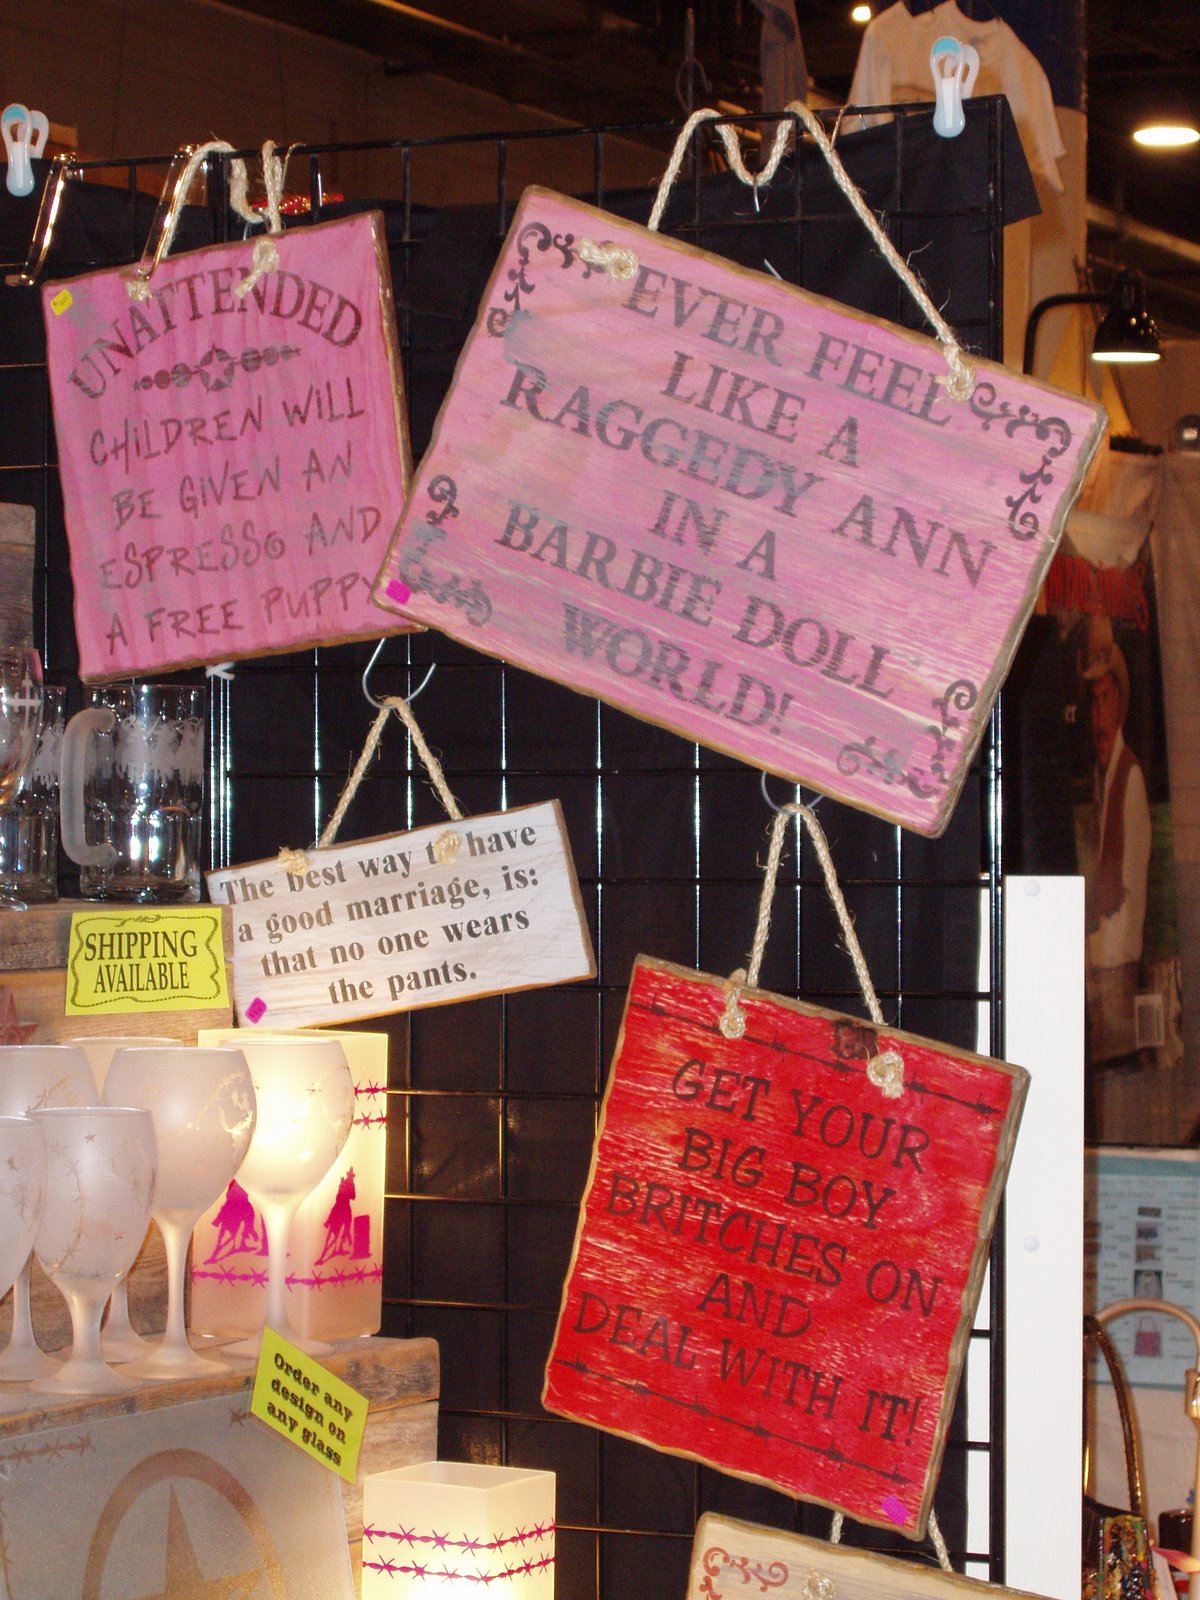 UNATTENDED
CHiLDREN WiLL
BE GiVEN AN
ESPRESSO AND
A FREE PUPPY
EVER FEEL
LIKE A
RAGGEDY ANN
IN A
BARBIE DOLL
WORLD!
The best way to have
a good marriage, is:
that no one wears
the pants.
SHIPPING
AVAILABLE
GET YOUR
BIG BOY
BRITCHES ON
AND
DEAL WITH IT!
Order any
design on
any glass